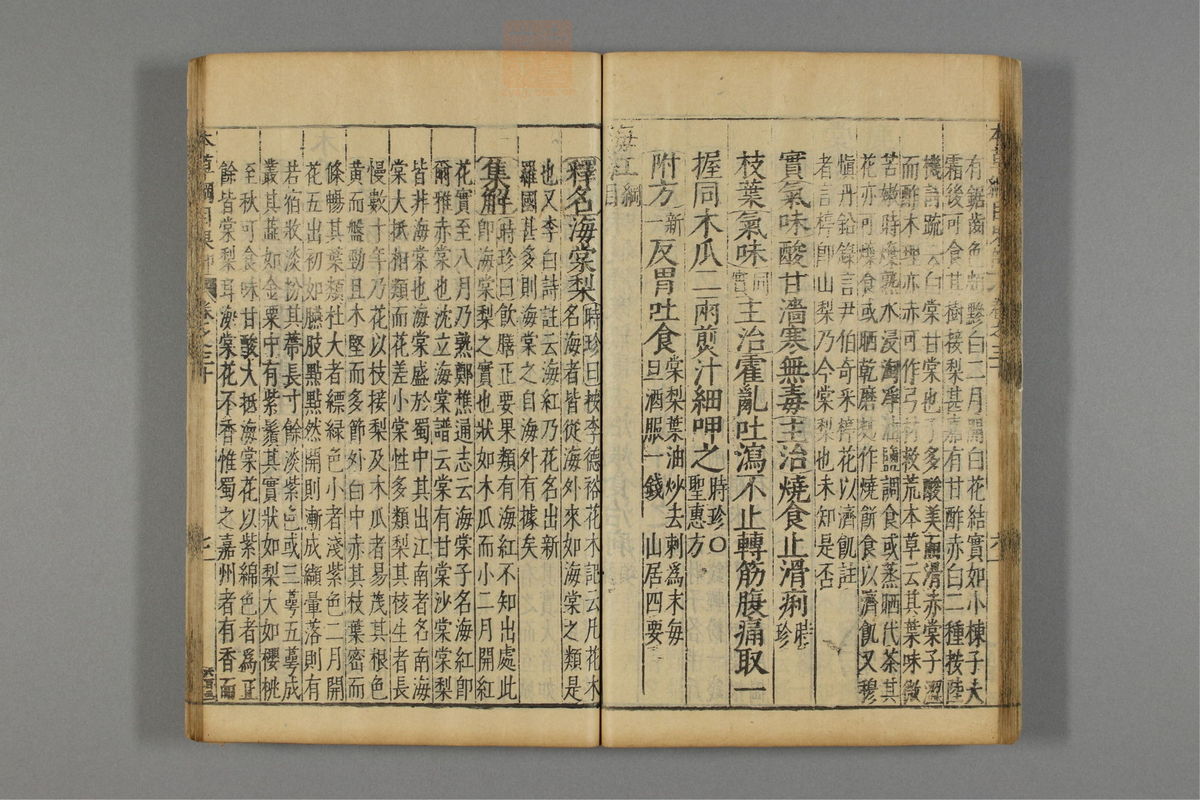 有鋸齒色黲白二月開白花結實如小楝子大
霜後可食其樹接梨甚嘉有甘酢赤白二種按陸
機詩疏云白棠甘棠也子多酸美而滑赤棠子澀
而酢木理亦赤可作弓材救荒本草云其葉味微
苦嫩時煠熟水浸淘淨油鹽調食或蒸晒代茶其
花亦可煠食或晒乾磨麪作燒餅食以濟飢又穆
愼丹鉛錄言尹伯奇采楟花以濟飢註
者言楟卽山梨乃今棠梨也未知是否
實氣味酸甘濇寒無毒主治燒食止滑痢時珍
枝葉氣味同實主治霍亂吐瀉不止轉筋腹痛取一
握同木瓜二兩煎汁細呷之時珍〇聖惠方
附方新一反胃吐食棠梨葉油炒去刺爲末每旦酒服一錢 山居四要
海紅綱目
釋名海棠梨時珍曰按李德裕花木記云凡花木
名海者皆從海外來如海棠之類是
也又李白詩註云海紅乃花名出新
羅國甚多則海棠之自海外有據矣
集解時珍曰飲膳正要果類有海紅不知出處此
卽海棠梨之實也狀如木瓜而小二月開紅
花實至八月乃熟鄭樵通志云海棠子名海紅卽
爾雅赤棠也沈立海棠譜云棠有甘棠沙棠棠梨
皆非海棠也海棠盛於蜀中其出江南者名南海
棠大抵相類而花差小棠性多類梨其核生者長
慢數十年乃花以枝接梨及木瓜者易茂其根色
黃而盤勁且木堅而多節外白中赤其枝葉密而
條暢其葉類杜大者縹綠色小者淺紫色二月開
花五出初如臙脂點點然開則漸成纈暈落則有
若宿妝淡粉其蒂長寸餘淡紫色或三萼五萼成
叢其蕋如金粟中有紫鬚其實狀如梨大如櫻桃
至秋可食味甘酸大抵海棠花以紫綿色者爲正
餘皆棠梨耳海棠花不香惟蜀之嘉州者有香而
本草綱目果部 卷之三十 七